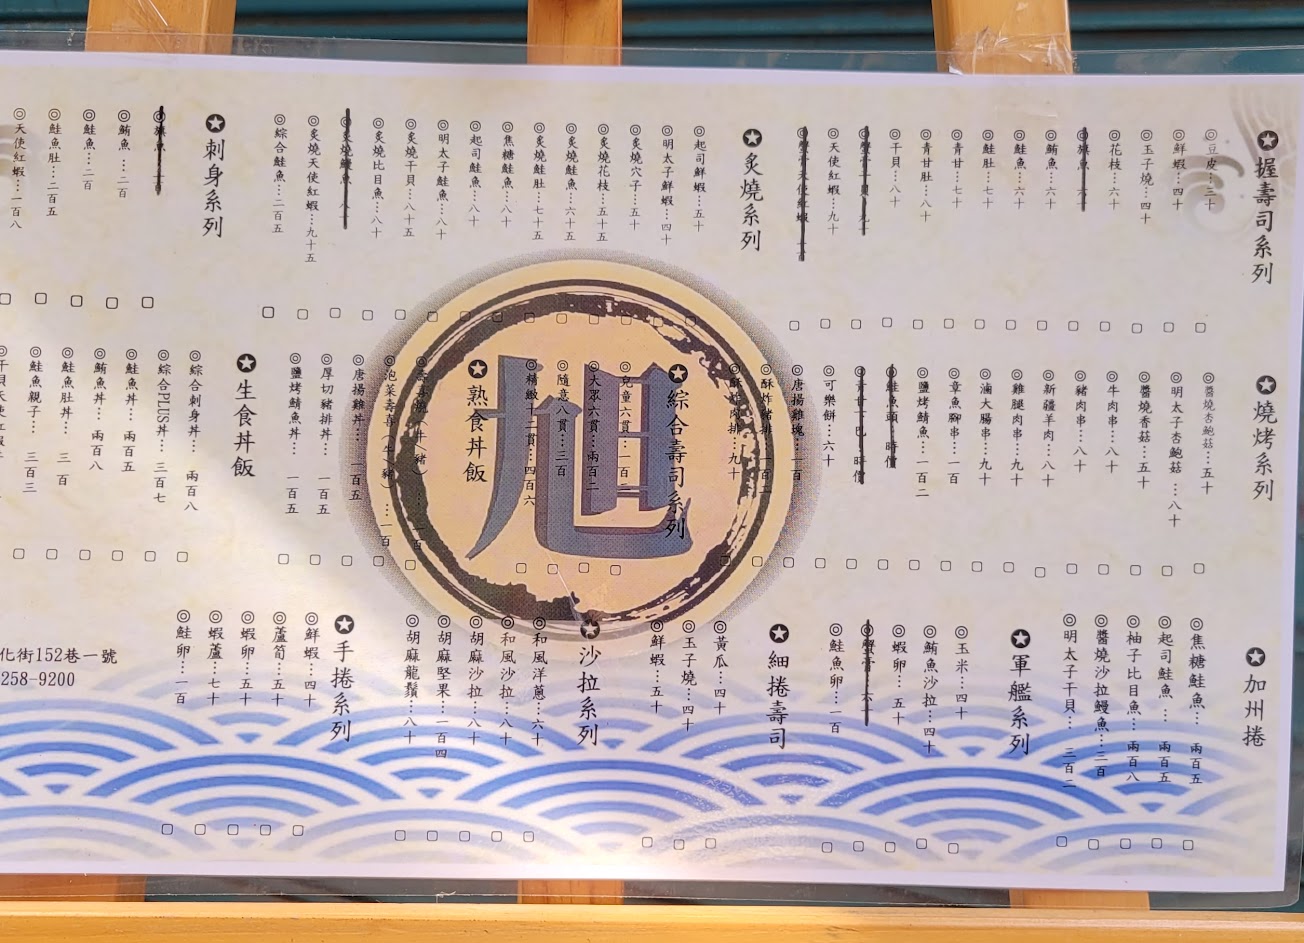 握壽司系列
豆皮…三十
鮮蝦…四十
玉子燒…四十
花枝…六十
旗魚…六十
鮪魚…六十
鮭魚…六十
鮭肚…七十
青甘…七十
青甘肚…八十
干貝…八十
天使紅蝦…九十
炙燒系列
起司鮮蝦…五十
明太子鮮蝦…四十
炙燒穴子…五十
炙燒花枝…五十五
炙燒鮭魚…六十五
炙燒鮭肚…七十五
焦糖鮭魚…八十
起司鮭魚…八十
明太子鮭魚…八十
炙燒干貝…八十五
炙燒比目魚…八十
炙燒天使紅蝦…九十五
綜合鮭魚…二百五
刺身系列
鮪魚…二百
鮭魚…二百
鮭魚肚…二百五
天使紅蝦…一百八
燒烤系列
醬燒杏鮑菇…五十
明太子杏鮑菇…八十
醬燒香菇…五十
牛肉串…八十
豬肉串…八十
新疆羊肉…八十
雞腿肉串…九十
滷大腸串…九十
章魚腳串…一百
鹽烤鯖魚…一百二
鮭魚頭…時價
青甘下巴…時價
可樂餅…六十
唐揚雞塊…一百
酥炸豬排…一百二
酥炸肉排…九十
綜合壽司系列
兒童六貫…一百二
大眾六貫…兩百二
隨意八貫…三百
精緻十二貫…四百六
旭
熟食丼飯
壽喜燒(牛/豬)…一百
泡菜壽喜(牛/豬)…一百
唐揚雞丼…一百五
厚切豬排丼…一百五
鹽烤鯖魚丼…一百五
生食丼飯
綜合刺身丼…兩百八
綜合PLUS丼…三百七
鮭魚丼…兩百五
鮪魚丼…兩百八
鮭魚肚丼…三百
鮭魚親子…三百三
加州捲
焦糖鮭魚…兩百五
起司鮭魚…兩百五
柚子比目魚…兩百八
醬燒沙拉鰻魚…三百
明太子干貝…三百二
軍艦系列
玉米…四十
鮪魚沙拉…四十
蝦卵…五十
蟹膏…六十
鮭魚卵…一百
細捲壽司
黃瓜…四十
玉子燒…四十
鮮蝦…五十
沙拉系列
和風洋蔥…六十
和風沙拉…八十
胡麻沙拉…八十
胡麻堅果…一百四
胡麻龍鬚…八十
手捲系列
鮮蝦…四十
蘆筍…五十
蝦卵…五十
蝦蘆…七十
鮭卵…一百
化街152巷一號
258-9200